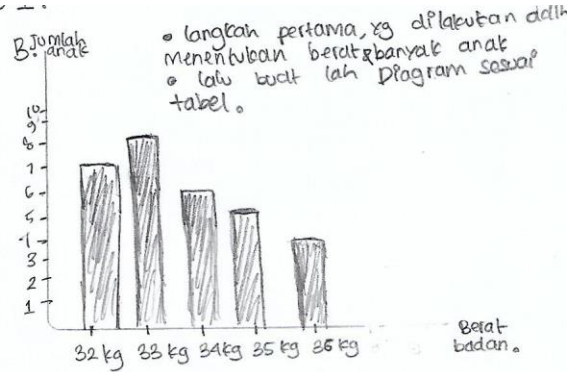 B. Jumlah anak
• langkah pertama, yg dilakukan adlh
menentukan berat & banyak anak
• lalu buat lah Diagram sesuai
tabel.
10
9
8
7
6
5
4
3
2
1
32 kg 33 kg 34 kg 35 kg 36 kg
Berat
badan.